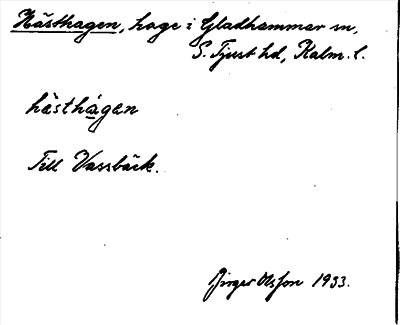 Hästhagen, hage i Gladhammar sn,
S. Tjust hd, Kalm. l.
hästhågen
Till Vassbäck.
Birger Olsson 1933.